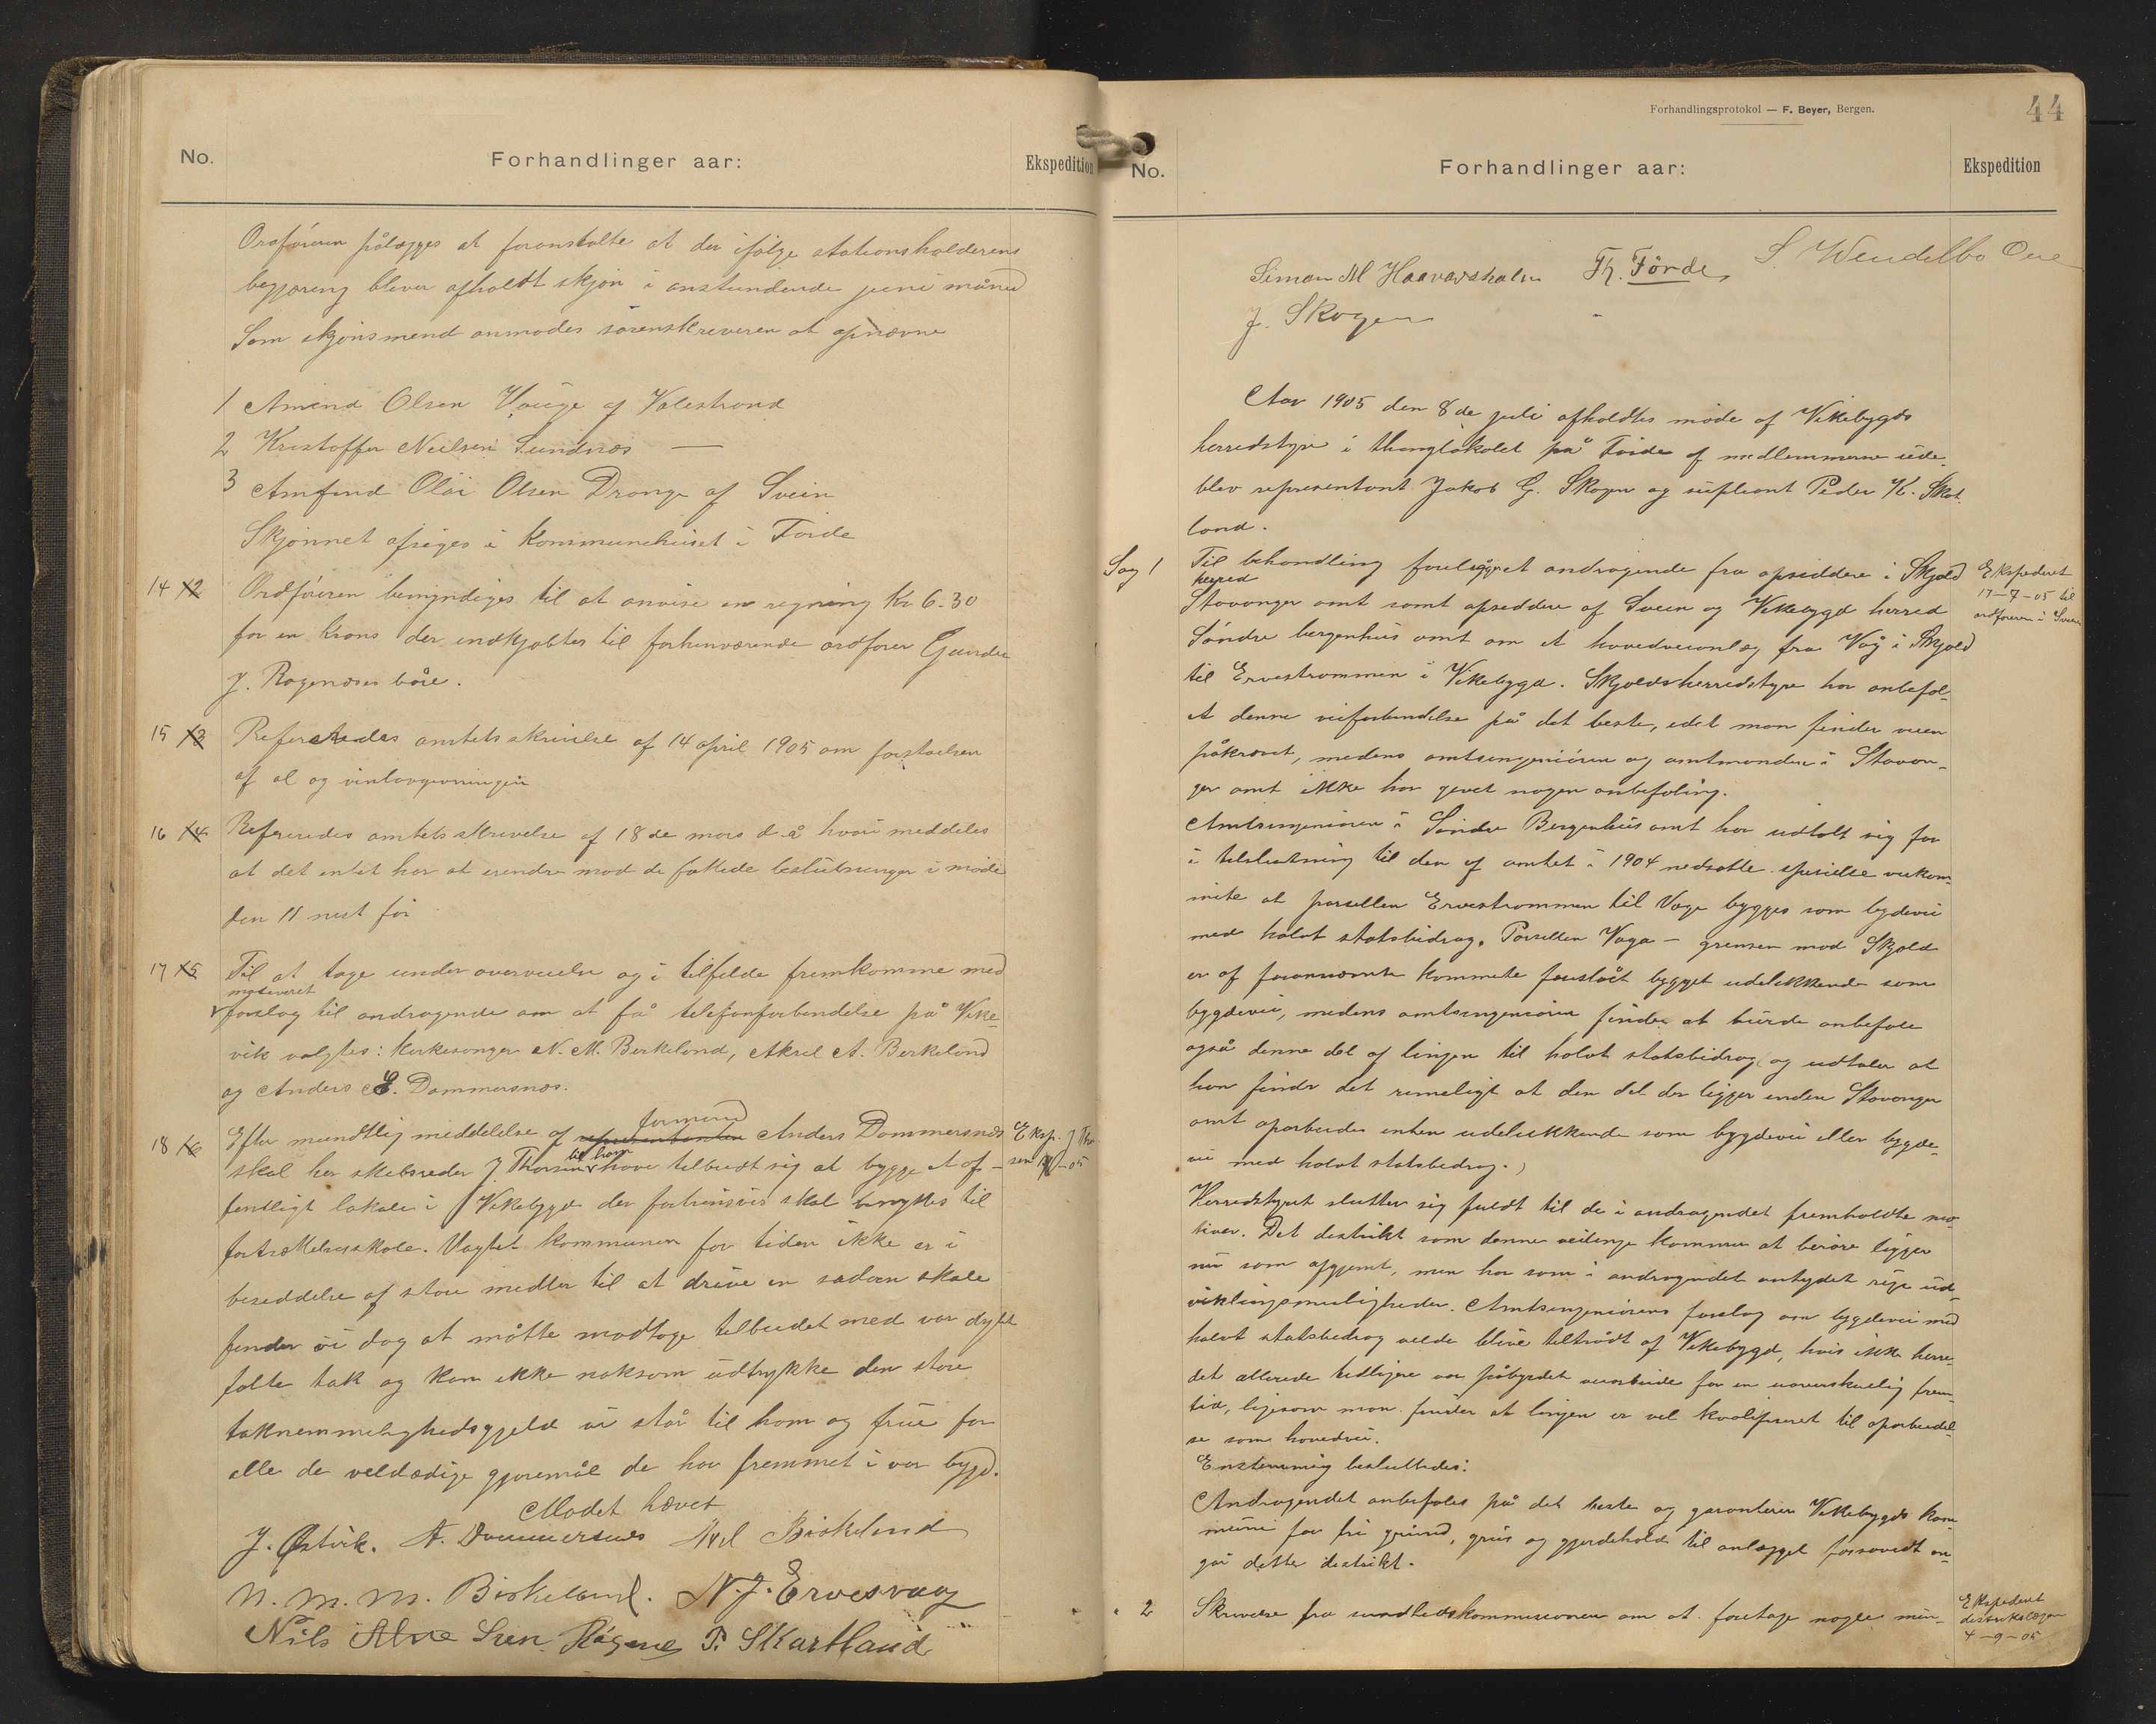 No.
Forhandlinger aar:
Ekspedition
Ordføreren pålægges at foranstalte at der ifølge stationsholderens
begjæring blever afholdt skjøn i anstundende juni måned
Som skjønsmend anmodes sorenskreveren at opnævne
1 Amund Olsen Våge af Valestrand
2 Kristoffer Neilsen Sundnæs —
3 Amfind Olai Olsen Drange af Svein
Skjønnet afsiges i Kommunehuset i Førde
14 12 Ordføreren bemyndiges til at anvise en regning Kr 6.30
for en krans der indkjøbtes til forhenværende ordfører Gunder
J. Ragenæses båre.
15 13 Refereredes amtets skrivelse af 14 april 1905 om forståelsen
af øl og vinlovgivningen
16 14 Refereredes amtets skrivelse af 18de mars d.å hvori meddeles
at det entet har at erendre mod de fattede beslutninger i møde
den 11 næst før
17 15 Til at tage under overveielse og i tilfælde fremkomme med
motiveret
forslag til andragende om at få telefonforbindelse på Vike-
vik valgtes: Kirkesanger N. M. Berkeland, Aksel A. Berkeland
og Anders E. Dommersnæs.
18 16 Efter mundtlig meddelelse af representanten formand Anders Dommersnæs
Eksp. J Thor
skal hr skibsreder J Thorsen til ham have tilbudt sig at bygge et of-
sen 05
fentligt lokale i Vikebygd der fortrinsvis skal benyttes til
fortsættelsesskole. Uagtet kommunen for tiden ikke er i
besiddelse af store medler til at drive en sådan skole
finder vi dog at måtte modtage tilbudet med vor dybt
følte tak og kan ikke noksom udtrykke den store
taknemmelighedsgjeld vi står til ham og frue for
alle de veldædige gjøremål de har fremmet i vor bygd.
Mødet hævet
J. Østvik. A. Dommersnes Axel Birkeland
N. M. M. Birkeland. N. J. Ervesvaag
Nils Alne Sven Røgenes P. Skartland
Forhandlingsprotokol — F. Beyer, Bergen.
44
No.
Forhandlinger aar:
Ekspedition
Simon M Haavarsholm Th. Førde, S. Wendelbo Øen
J. Skogen
Aar 1905 den 8de juli afholdtes møde af Vikebygds
herredstyre i thinglokalet på Førde af medlemmerne ude-
blev representant Jakob G. Skogen og supleant Peder K. Skot-
land.
Sag 1 Til behandling forelagdes et andragende fra opsiddere i Skjold
herred
Ekspederet
17-7-05 til
ordføreren i Svein
Stavanger amt samt opseddere af Svein og Vikebygd herred
Søndre bergenhus amt om et hovedveianlæg fra Våg i Skjold
til Ervestrømmen i Vikebygd. Skjolds herredstyre har anbefal-
et denne veiforbindelse på det beste, idet man finder veien
påkrævet, medens amtsingeniøren og amtmanden i Stavan-
ger amt ikke har givet nogen anbefaling.
Amtsingeniøren i Søndre Bergenhus amt har udtalt sig for
i tilslutning til den af amtet i 1904 nedsatte spesielle veikom-
mite at parsellen Ervestrømmen til Vaga bygges som bygdevei
med halvt statsbidrag. Parsellen Vaga — grensen mod Skjold
er af forannævnte kommete foreslået bygget udelukkende som
bygdevei, medens amtsingeniøren finder at burde anbefale
også denne del af linjen til halvt statsbidrag, og udtaler at
han finder det rimeligt at den del der ligger inden Stavanger
amt oparbeides enten udelukkende som bygdevei eller bygde-
vei med halvt statsbedrag.
Herredstyret slutter sig fuldt til de i andragendet fremholdte mo-
tiver. Det destrikt som denne veilinje kommer at berøre ligger
nu som afgjemt, men har som i andragendet antydet rige ud-
viklingsmuligheder. Amtsingeniørens forslag om bygdevei med
halvt statsbedrag vilde blive tiltrådt af Vikebygd, hvis ikke herre-
det allerede tidligere var påbyrdet veiarbeide for en uoverskuelig frem-
tid, ligesom man finder at linjen er vel kvalifiseret til oparbeidel-
se som hovedvei.
Enstemmig besluttedes:
Andragendet anbefales på det beste og garanterer Vikebygds kom-
mune for fri grund, grus og gjerdehold til anlægget forsavidt an-
går dette destrikt.
2 Skrivelse fra sundhedskommissionen om at foretage nogle min-
Ekspederet
destriktslægen
4-9-05